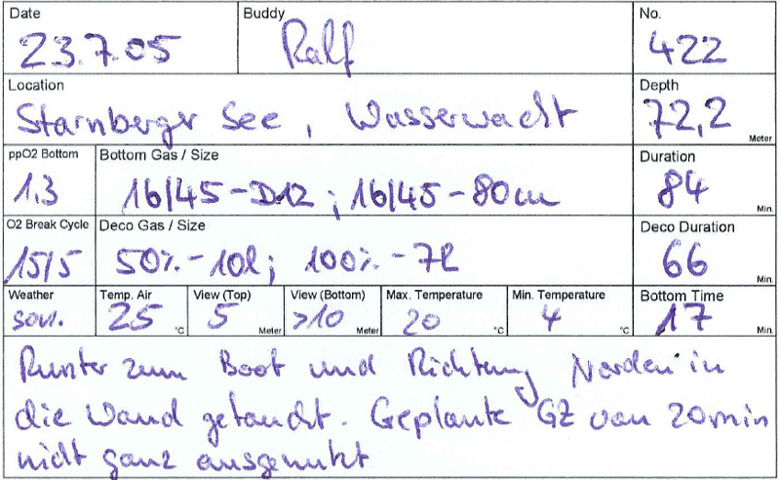 Date Buddy No.
23.7.05 Ralf 422
Location Depth
Starnberger See, Wasserwacht 72,2 Meter
ppO2 Bottom Bottom Gas / Size Duration
1,3 16/45-D12; 16/45-80cu 84 Min.
O2 Break Cycle Deco Gas / Size Deco Duration
15/5 50%-10l; 100%-7l 66 Min.
Weather Temp. Air View (Top) View (Bottom) Max. Temperature Min. Temperature Bottom Time
25 °C 5 Meter >10 Meter 20 °C 4 °C 17 Min.
Runter zum Boot und Richtung Norden in
die Wand getaucht. Geplante GZ von 20min
nicht ganz ausgenutzt